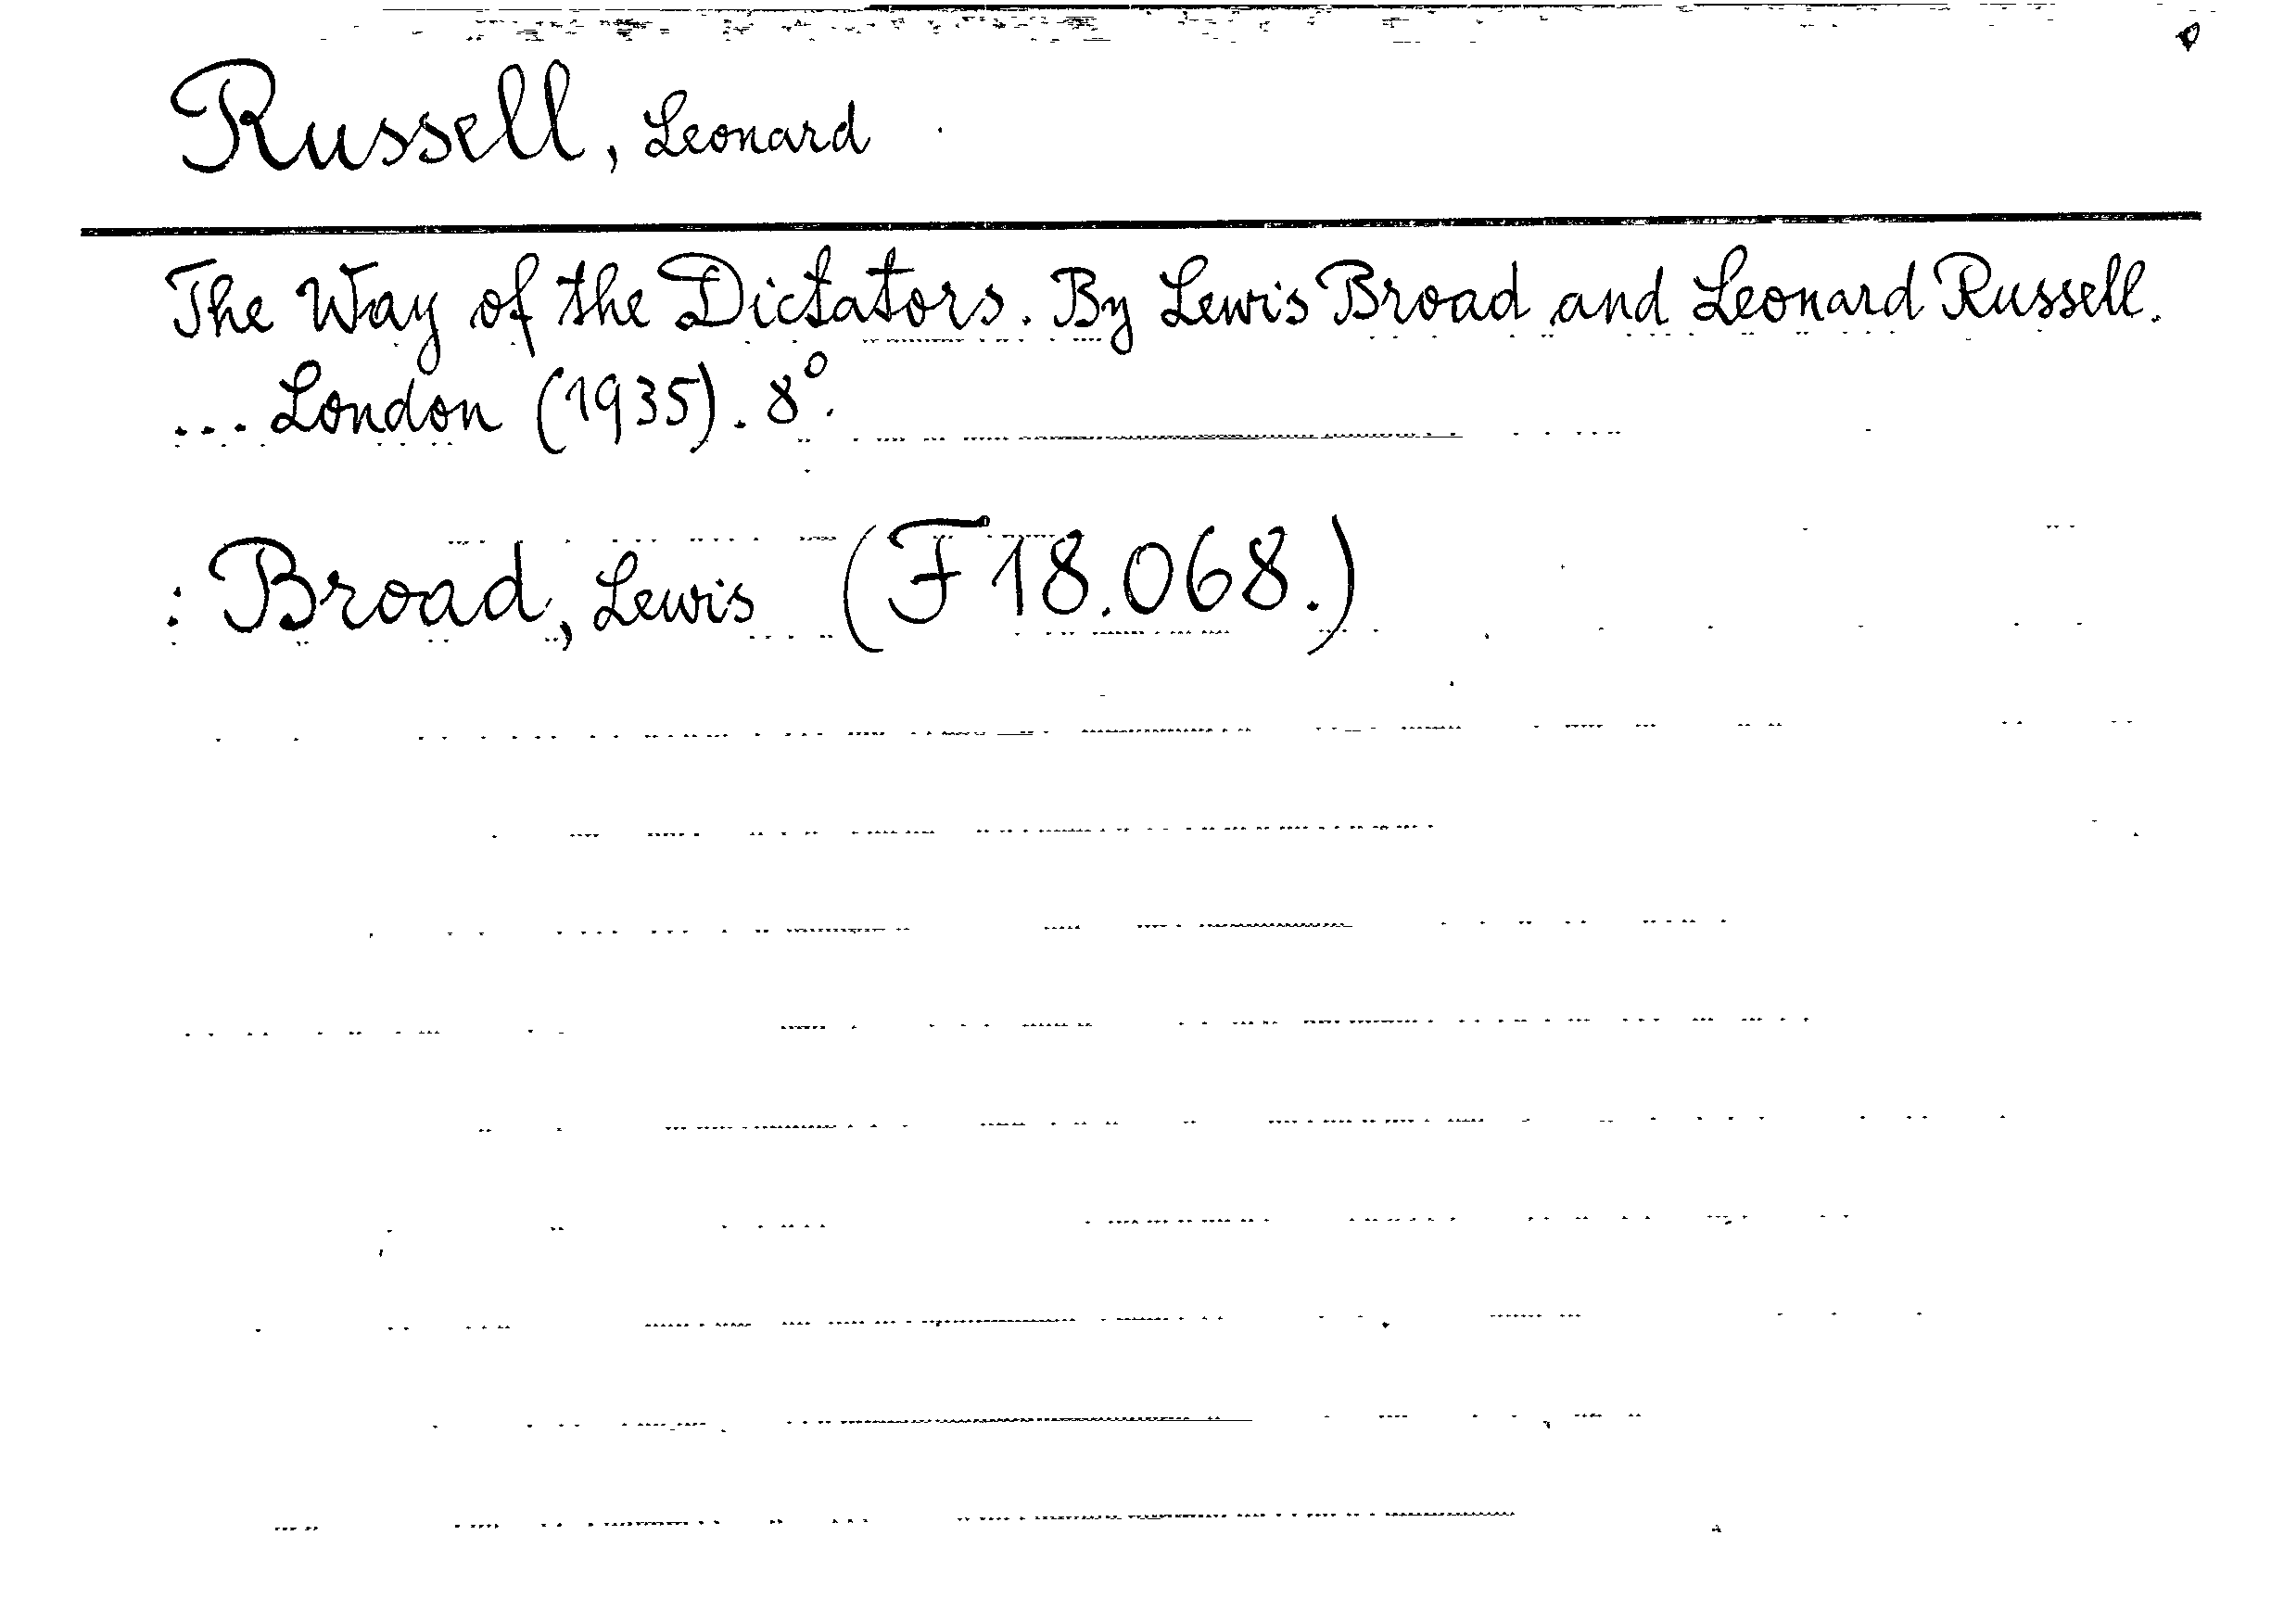 Russell, Leonard
The Way of the Dictators. By Lewis Broad and Leonard Russell.
... London (1935). 8º.
: Broad, Lewis (F 18.068.)